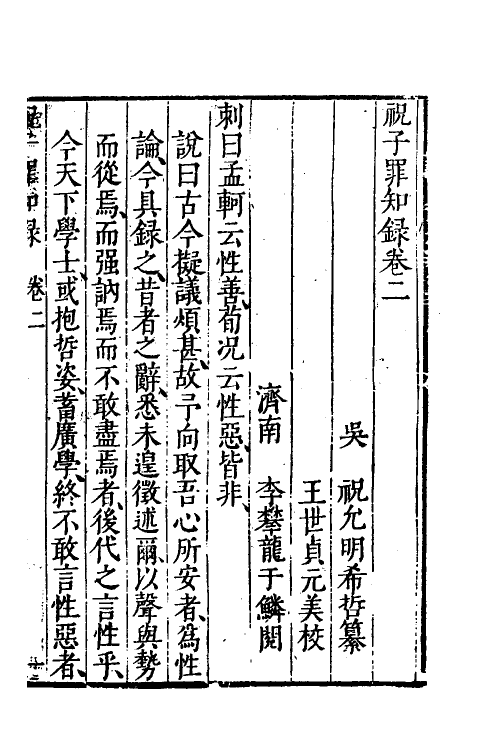 祝子罪知録卷二
吳　祝允明希哲纂
王世貞元美校
濟南　李攀龍于鱗閱
刺曰孟軻云性善、荀况云性惡、皆非、
說曰古今擬議煩甚、故予向取吾心所安者、爲性
論、今具録之、昔者之辭、悉未遑徵述爾、以聲與勢
而從焉、而强訥焉而不敢盡焉者、後代之言性乎、
今天下學士、或抱哲姿、蓄廣學、終不敢言性惡者、
罪知録　卷二